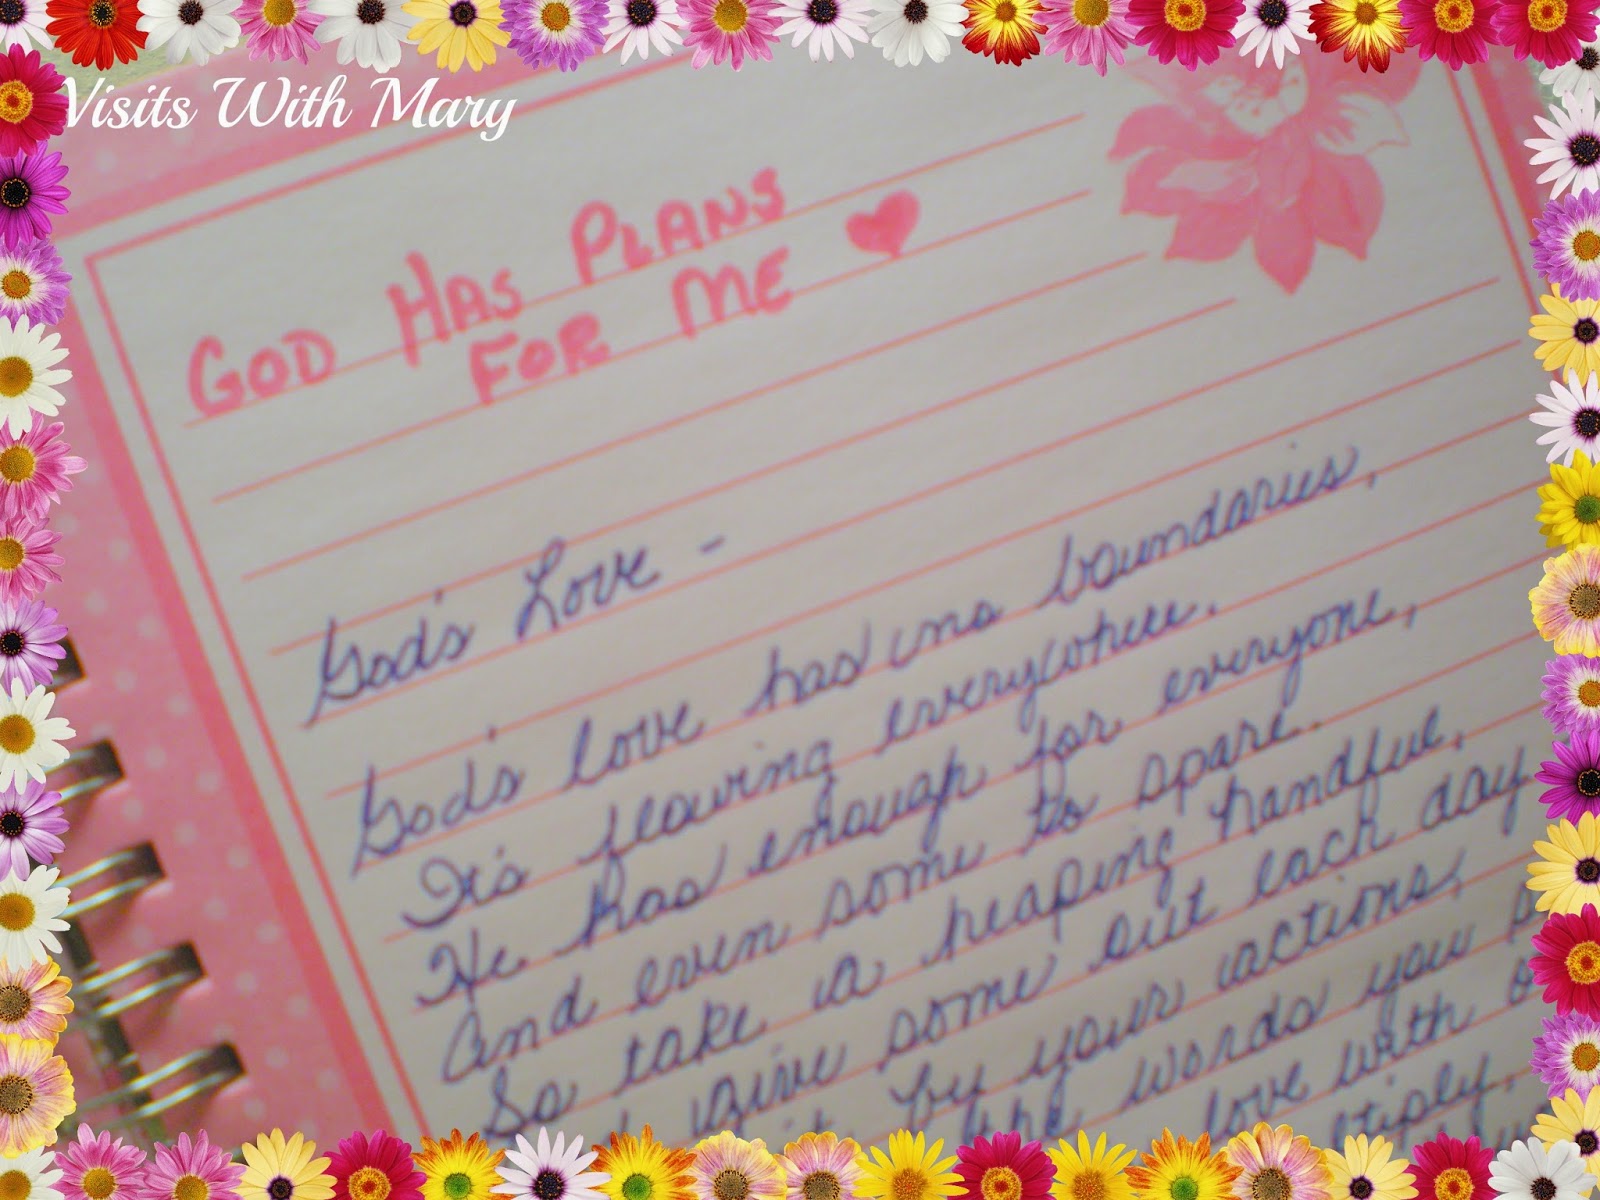 Visits With Mary
GOD HAS PLANS
FOR ME
God's Love -
God's love has no boundaries,
It's flowing everywhere.
He has enough for everyone,
And even some to spare.
So take a heaping handful,
give some out each day
it by your actions,
the words you
love with